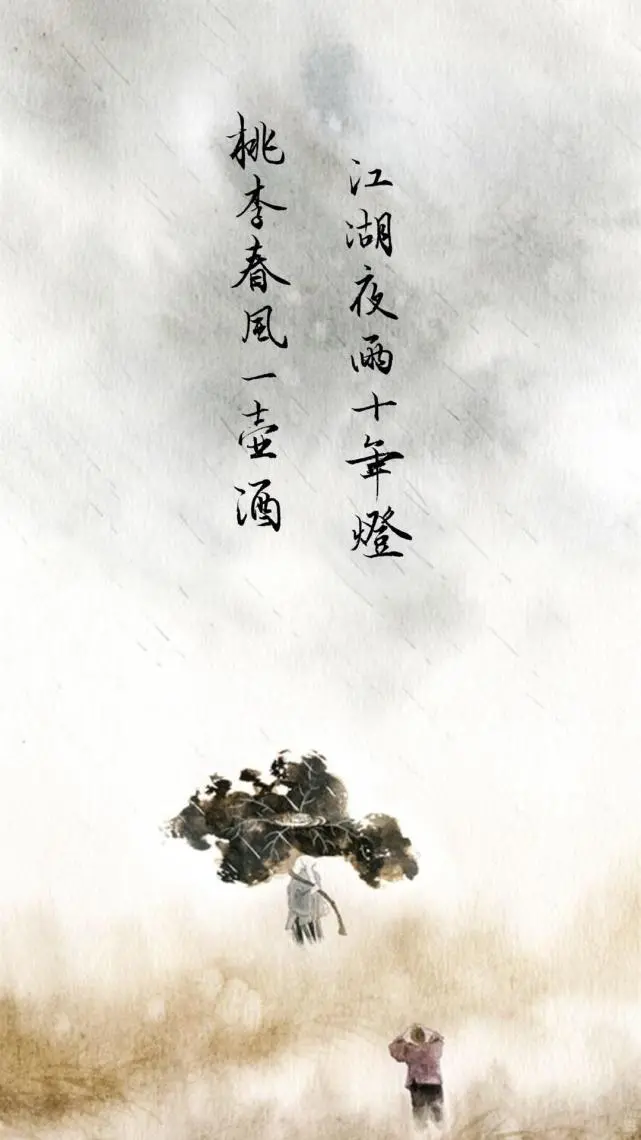 桃李春風一壺酒
江湖夜雨十年燈